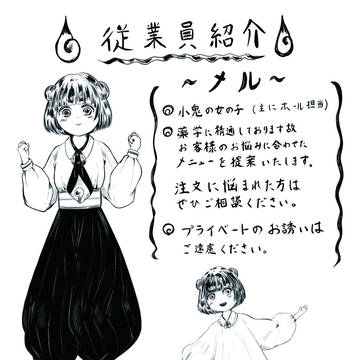 従業員紹介
～メル～
小鬼の女の子（主にホール担当）
薬学に精通しております故
お客様のお悩みに合わせた
メニューを提案いたします。
注文に悩まれた方は
ぜひご相談ください。
プライベートのお誘いは
ご遠慮ください。